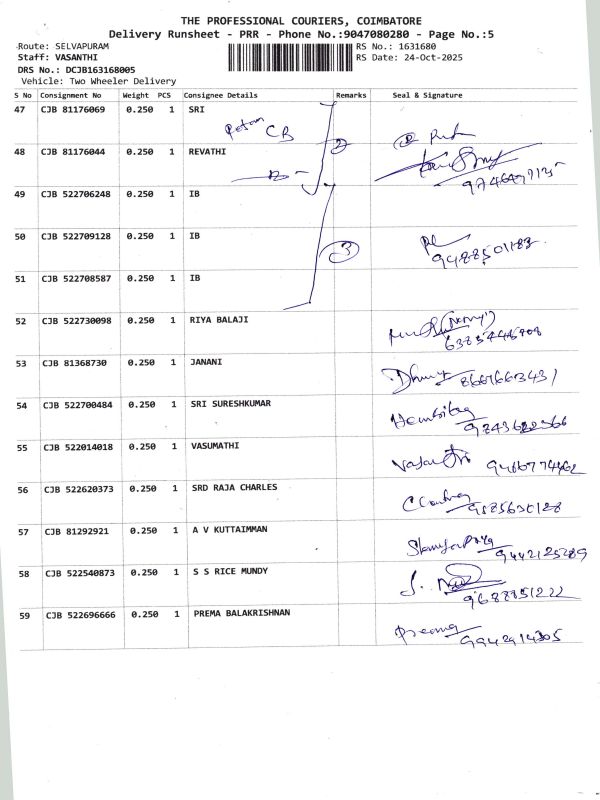 THE PROFESSIONAL COURIERS, COIMBATORE
Delivery Runsheet - PRR - Phone No.:9047080280 - Page No.:5
Route: SELVAPURAM RS No.: 1631680
Staff: VASANTHI RS Date: 24-Oct-2025
DRS No.: DCJB163168005
Vehicle: Two Wheeler Delivery
S No Consignment No Weight PCS Consignee Details Remarks Seal & Signature
47 CJB 81176069 0.250 1 SRI
CB
2
48 CJB 81176044 0.250 1 REVATHI
49 CJB 522706248 0.250 1 IB
50 CJB 522709128 0.250 1 IB
3 9488501183
51 CJB 522708587 0.250 1 IB
52 522730098 0.250 1 RIYA BALAJI
53 CJB 81368730 0.250 1 JANANI
54 CJB 522700484 0.250 1 SRI SURESHKUMAR
55 CJB 522014018 0.250 1 VASUMATHI
56 CJB 522620373 0.250 1 SRD RAJA CHARLES
57 CJB 81292921 0.250 1 A V KUTTAIMMAN
9442125289
58 CJB 522540873 0.250 1 S S RICE MUNDY
9688851222
59 CJB 522696666 0.250 1 PREMA BALAKRISHNAN
9942914305